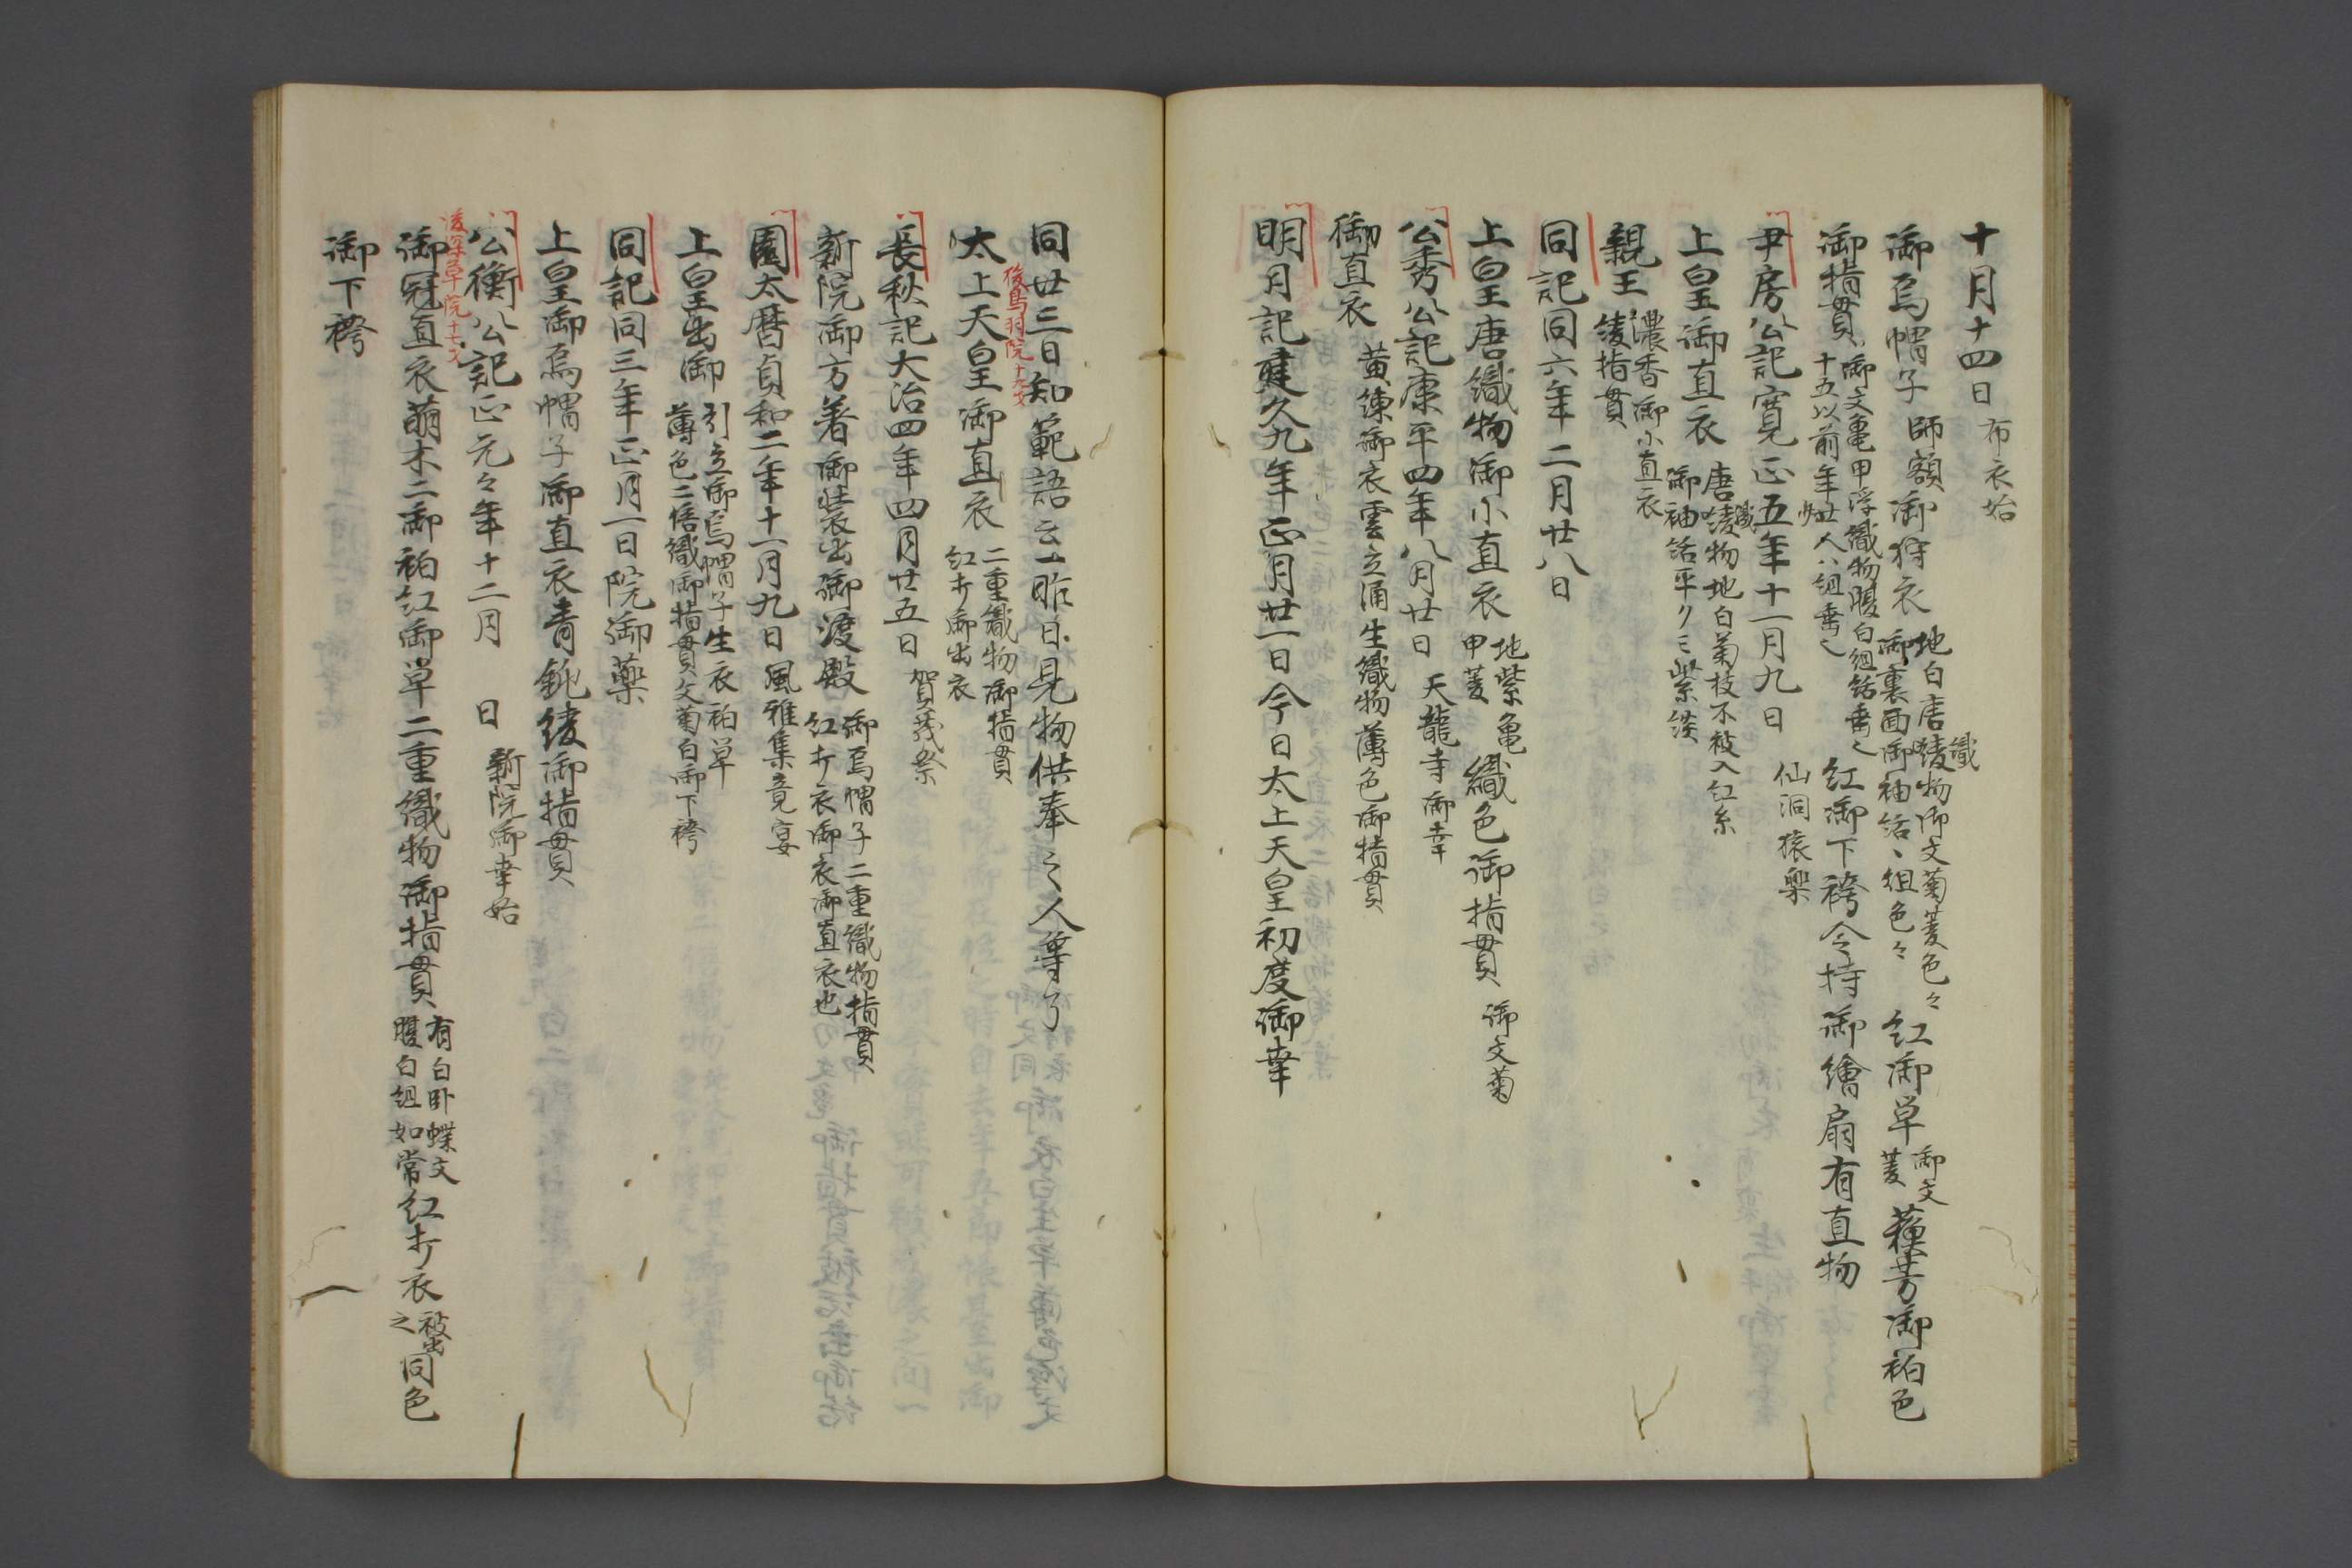 十月十四日 布衣始
御烏帽子 師額 御狩衣 地白唐綾物御文菊菱色々 織 御裏面御袖括、組色々 紅御草 御文菱 蘓芳御袙色
御指貫 御文亀甲浮織物腹白組括垂之 十五以前年廿人八組垂之 紅御下袴令持御繪扇有直物
尹房公記寛正五年十一月九日 仙洞猿樂
上皇御直衣 唐綾物地白菊枝不被入紅糸 織 御袖括平クミ紫緂
親王 濃香御小直衣 綾指貫
同記同六年二月廿八日
上皇唐織物御小直衣 地紫亀甲菱 織色御指貫 御文菊
公秀公記康平四年八月廿日 天龍寺御幸
御直衣 黄練御衣雲立涌生織物薄色御指貫
明月記建久九年正月廿一日今日太上天皇初度御幸
同廿三日知範語云一昨日見物供奉之人等了
後鳥羽院十九才
太上天皇御直衣 二重織物御指貫 紅打御出衣
長秋記大治四年四月廿五日 賀茂祭
新院御方着御装出御渡殿 御烏帽子二重織物指貫 紅打衣御衣御直衣也
園太暦貞和二年十一月九日 風雅集竟宴
上皇出御 引立御烏帽子生衣袙草 薄色二倍織御指貫文菊白御下袴
同記同三年正月一日院御藥
上皇御烏帽子御直衣青鈍綾御指貫
公衡公記正元々年十二月 日 新院御幸始
後深草院十七才
御冠直衣萠木二御袙紅御草二重織物御指貫 有白卧蝶文 腹白組如常 紅打衣 被出之 同色
御下袴